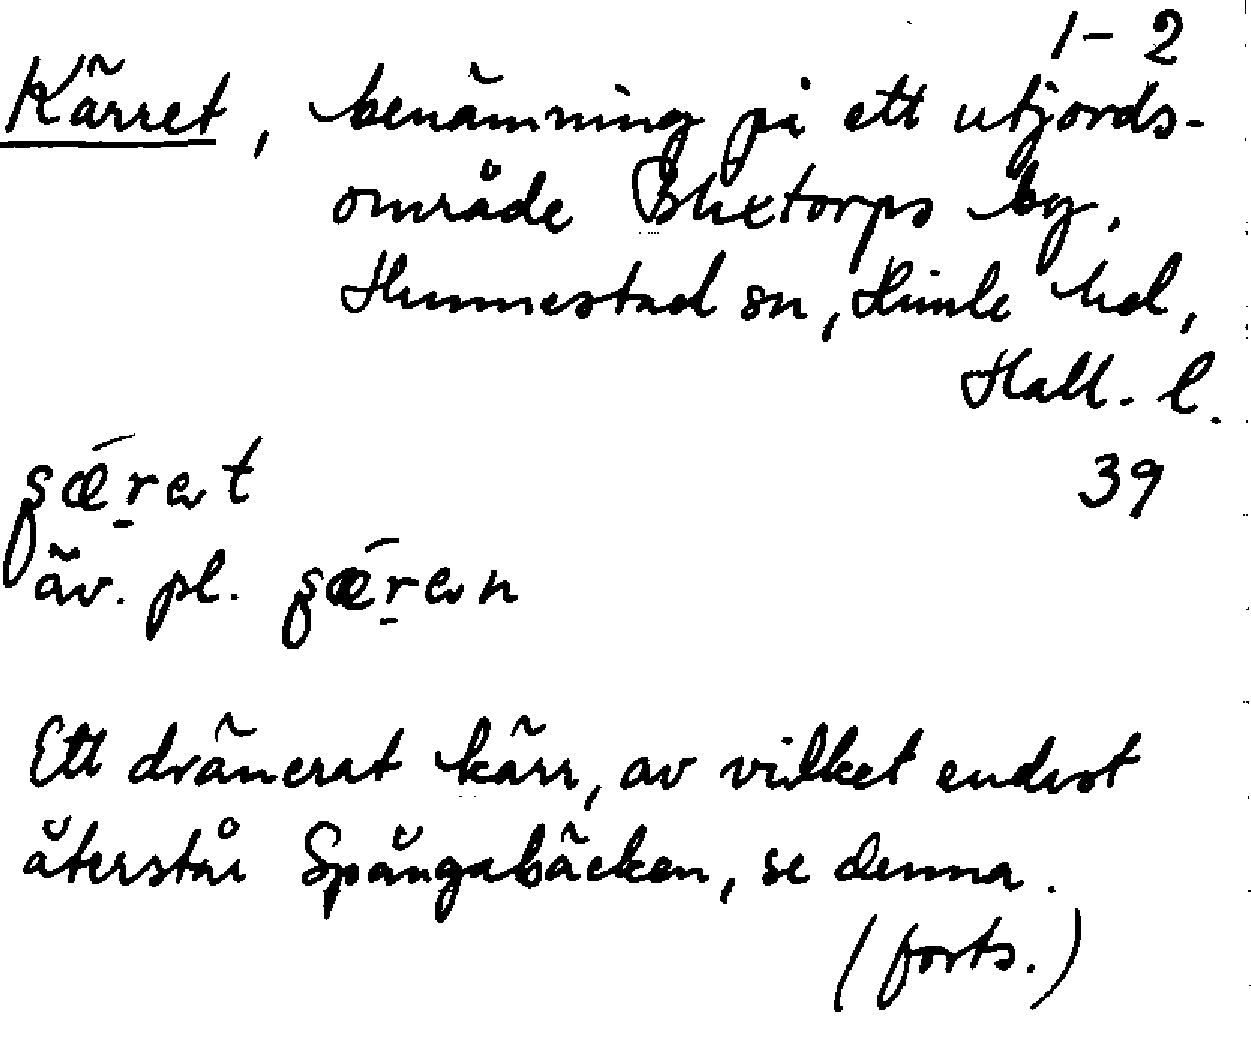 1-2
Kärret, benämning på ett utjords-
område Blixtorps by,
Hunnestad sn, Himle hd,
Hall. l.
39
ʂǽr̲at
äv. pl. ʂǽr̲an
Ett dränerat kärr, av vilket endast
återstår Spångabäcken, se denna.
(forts.)